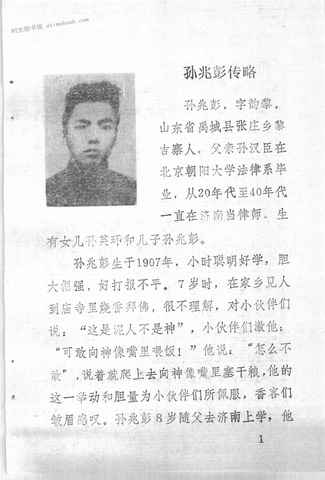 孙兆彭传略
孙兆彭，字韵黎，
山东省禹城县张庄乡黎
吉寨人。父亲孙汉臣在
北京朝阳大学法律系毕
业，从20年代至40年代
一直在济南当律师。生
有女儿孙英环和儿子孙兆彭。
孙兆彭生于1907年，小时聪明好学，胆
大倔强，好打报不平。7岁时，在家乡见人
到庙寺里烧香拜佛，很不理解，对小伙伴们
说：“这是泥人不是神”，小伙伴们激他：
“可敢向神像嘴里喂饭！”他说：“怎么不
敢”，说着就爬上去向神像嘴里塞干粮，他的
这一举动和胆量为小伙伴们所佩服，香客们
皱眉惊叹。孙兆彭8岁随父去济南上学，他
1